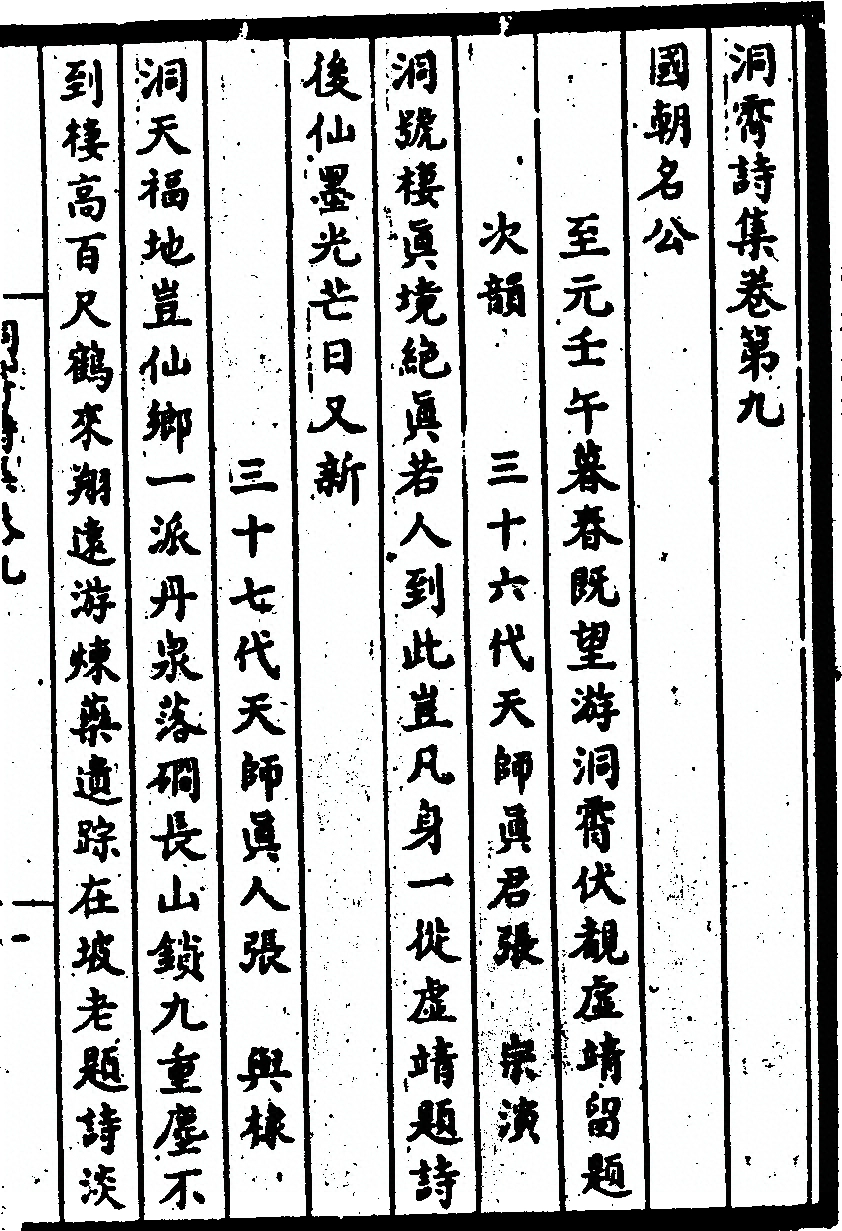 洞霄詩集卷第九
國朝名公
至元壬午暮春既望游洞霄伏覩虛靖留題
次韻　三十六代天師眞君張　宗演
洞號棲眞境絶眞若人到此豈凡身一從虛靖題詩
後仙墨光芒日又新
三十七代天師眞人張　與棣
洞天福地豈仙鄉一派丹泉落磵長山鎖九重塵不
到棲高百尺鶴來翔遠游煉藥遺踪在坡老題詩淡